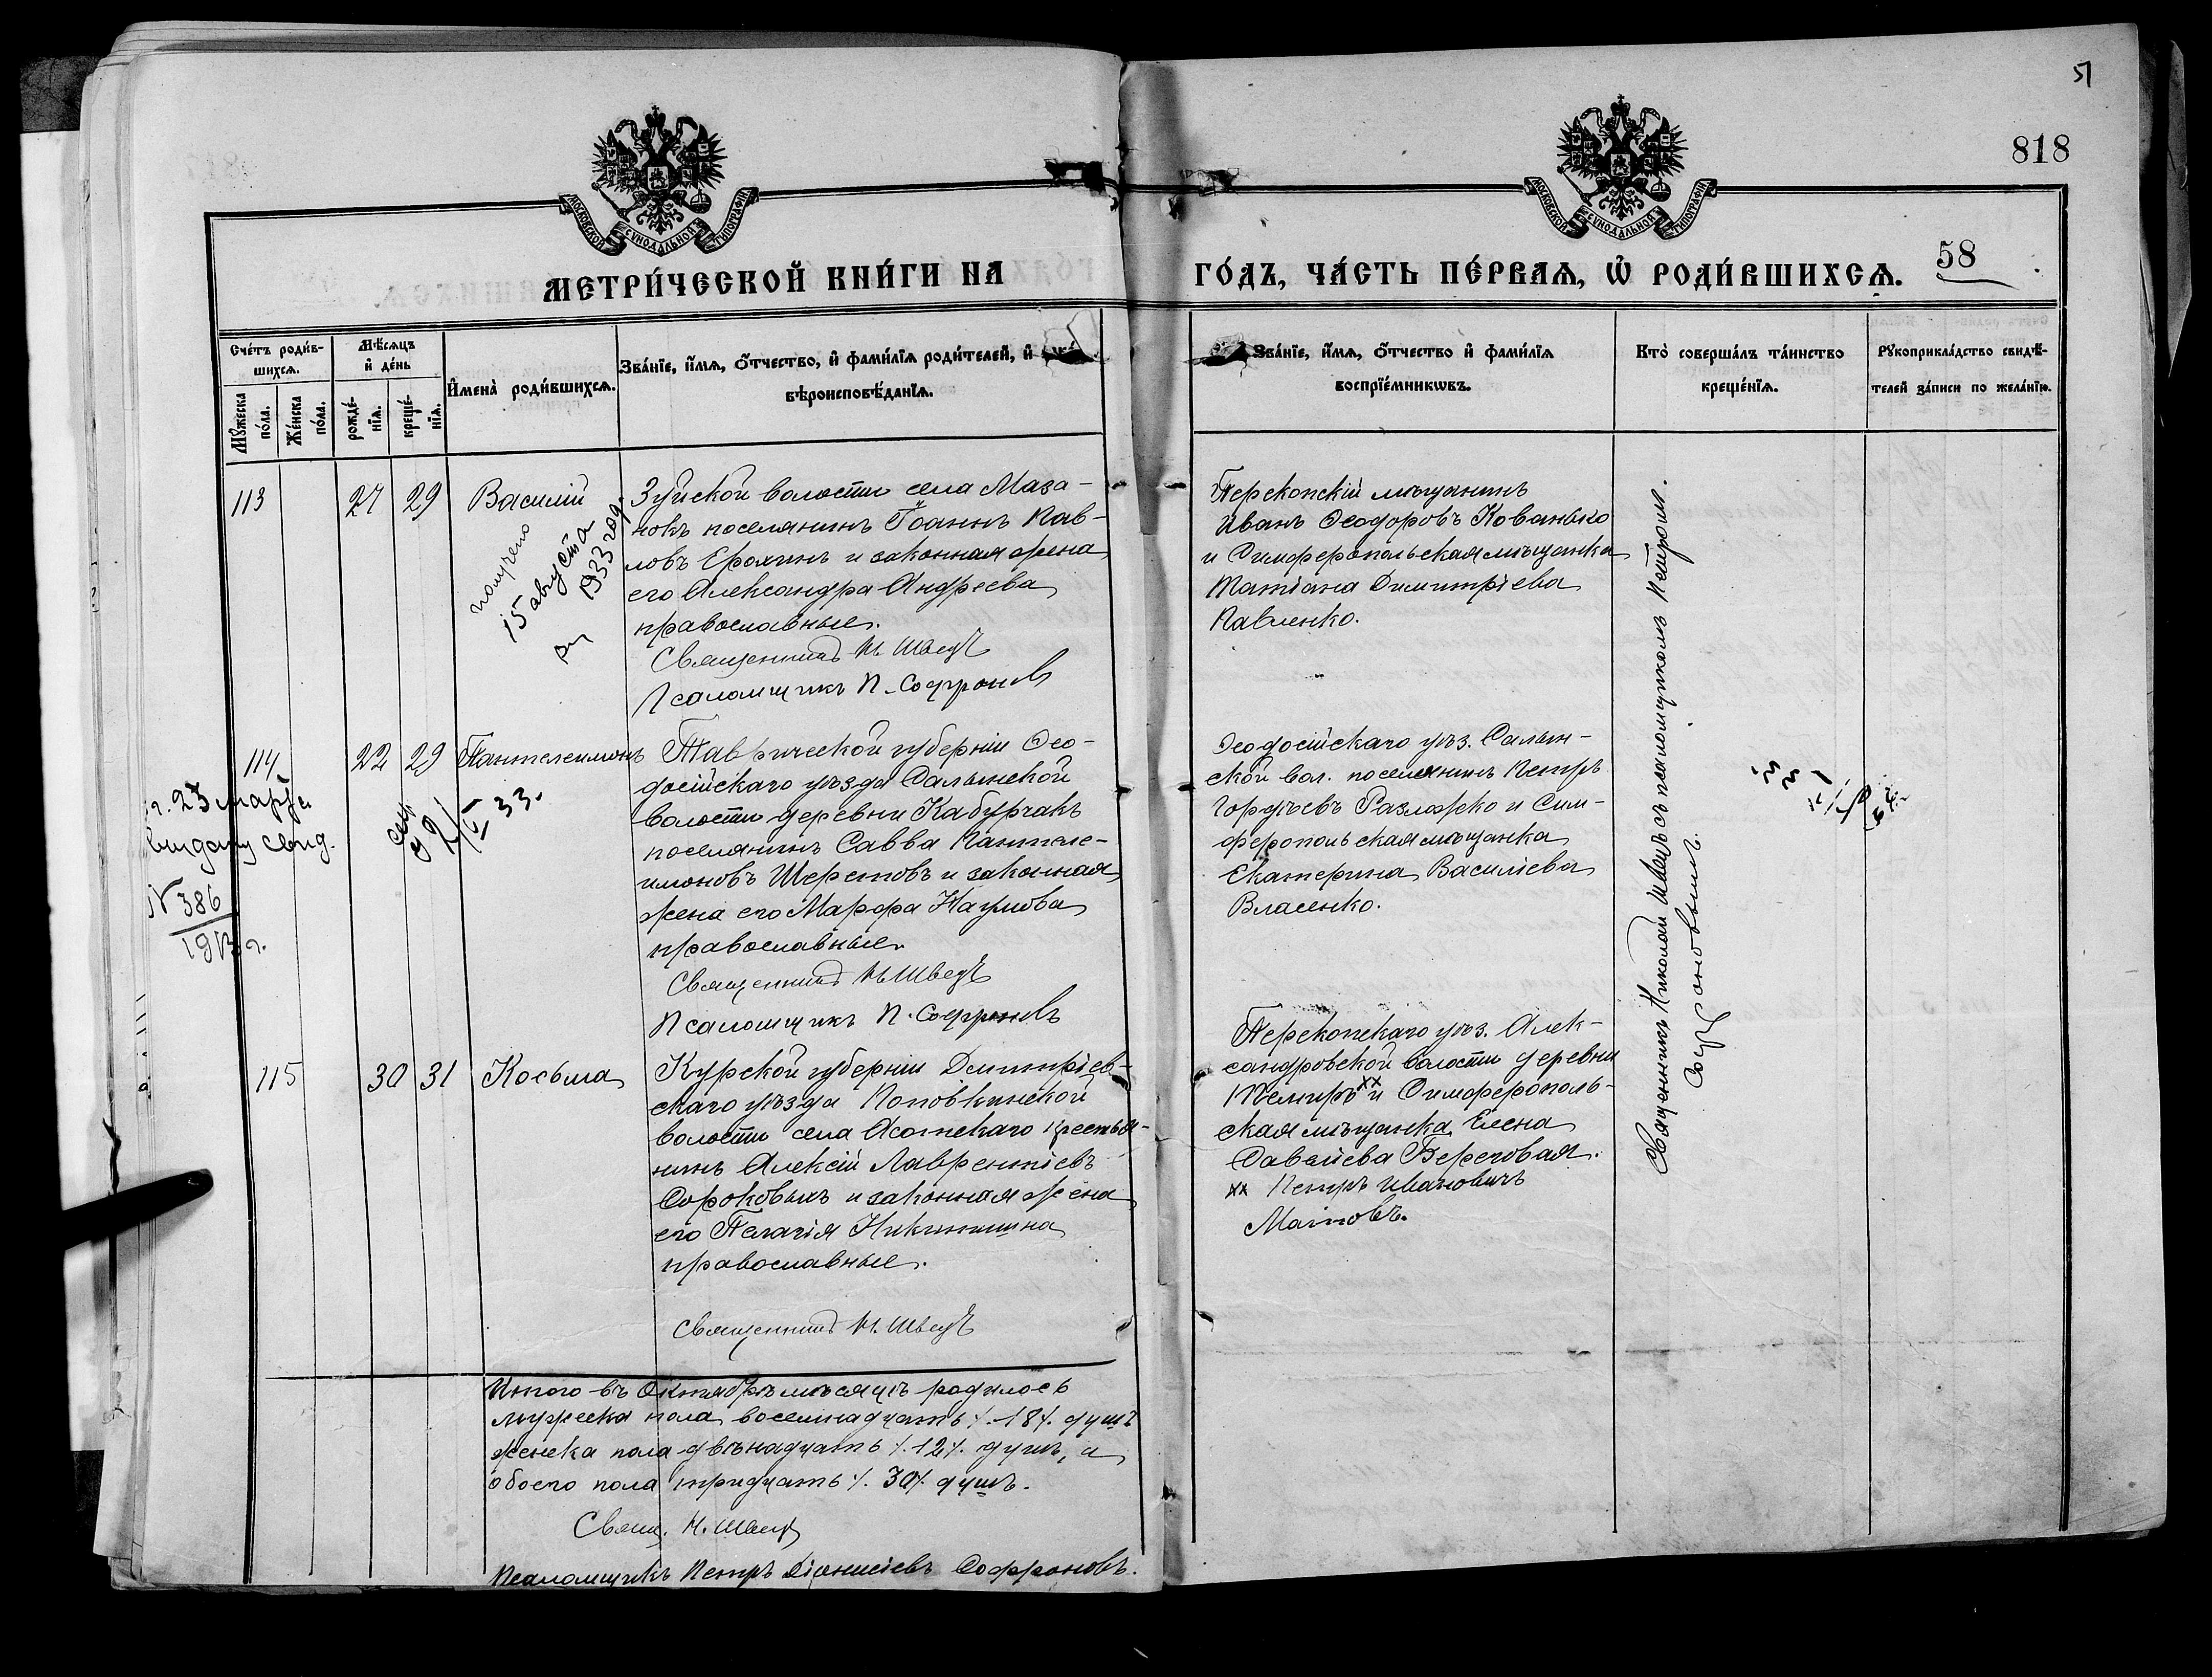 51
818
МОСКОВСКОЙ СѴНОДАЛЬНОЙ ТИПОГРАФІИ
МОСКОВСКОЙ СѴНОДАЛЬНОЙ ТИПОГРАФІИ
МЕТРИ́ЧЕСКОЙ КНИ́ГИ НА ГО́ДЪ, ЧА́СТЬ ПЕ́РВАѦ, Ѡ РОДИ́ВШИХСѦ.
58
Сче́тъ роди́в-
шихсѧ.
Мѣ́сѧцъ
и де́нь
Мꙋ́жеска по́ла.
Же́нска по́ла.
рожде́-нїѧ.
креще́-нїѧ.
И҆мена̀ роди́вшихсѧ.
Зва́нїе, и҆́мѧ, ѻ҆́тчество, и҆ фами́лїѧ роди́телей, и҆
вѣроисповѣ́данїѧ.
Зва́нїе, и҆́мѧ, ѻ҆́тчество и҆ фами́лїѧ
воспрїе́мникѡвъ.
Кто̀ соверша́лъ та́инство
креще́нїѧ.
Рꙋкоприкла́дство свидѣ́-
телей за́писи по жела́нїю.
113
27
29
Василій
получено
15 августа
1933 год.
Зуйской волости села Маза-
нокъ поселянинъ Іоаннъ Пав-
ловъ Ерохинъ и законная жена
его Александра Андреева
православные.
Священникъ Н. Швецъ
Псаломщикъ П. Софроновъ
Перекопскій мѣщанинъ
Иванъ Ѳеодоровъ Кованько
и Симферопольская мѣщанка
Татіана Димитріева
Павленко.
114
22
29
Пантелеимонъ
21/V 33.
г. 23 марта
выдану свид.
N 386
1913 г.
Таврической губерніи Ѳео-
досійскаго уѣзда Салынской
волости деревни Кабурчакъ
поселянинъ Савва Пантеле-
имоновъ Шерстовъ и законная
жена его Марфа Наумова
православные.
Священникъ Н. Швецъ
Псаломщикъ П. Софроновъ
Ѳеодосійскаго уѣз. Салын-
ской вол. поселянинъ Петръ
Гордѣевъ Размежко и Сим-
феропольская мѣщанка
Екатерина Василіева
Власенко.
115
30
31
Косьма
Курской губерніи Димитріев-
скаго уѣзда Поповкинской
волости села крестья-
нинъ Алексій Лаврентіевъ
Сороковыхъ и законная жена
его Пелагія Никитишна
православные.
Священникъ Н. Швецъ
Перекопскаго уѣз. Алек-
сандровской волости деревни
Темиръ хх и Симферополь-
ская мѣщанка Елена
Савѣлева Береговая.
хх Петръ Ивановичъ
Маіновъ.
Священникъ Николай Швецъ съ псаломщикомъ Петромъ
Софроновымъ.
Итого въ Октябрѣ мѣсяцѣ родилось
мужеска пола восемнадцать ./. 18 ./. душъ
женска пола двѣнадцать ./. 12 ./. душъ, и
обоего пола тридцать ./. 30 ./. душъ.
Свящ. Н. Швецъ
Псаломщикъ Петръ Діонисіевъ Софроновъ.